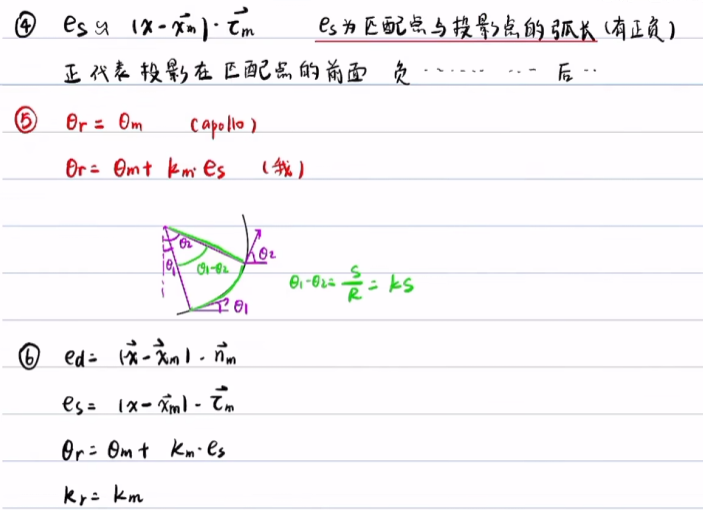 ④ es ≈ (x - x⃗m)·τ⃗m es为匹配点与投影点的弧长(有正负)
正代表投影在匹配点的前面 负 ······ ··· 后 ··
⑤ θr = θm (apollo)
θr = θm + km·es (我)
θ2
θ1
θ1-θ2
θ2
θ1
θ1-θ2 = s/R = ks
⑥ ed = (x⃗ - x⃗m)·n⃗m
es = (x - x⃗m)·τ⃗m
θr = θm + km·es
kr = km